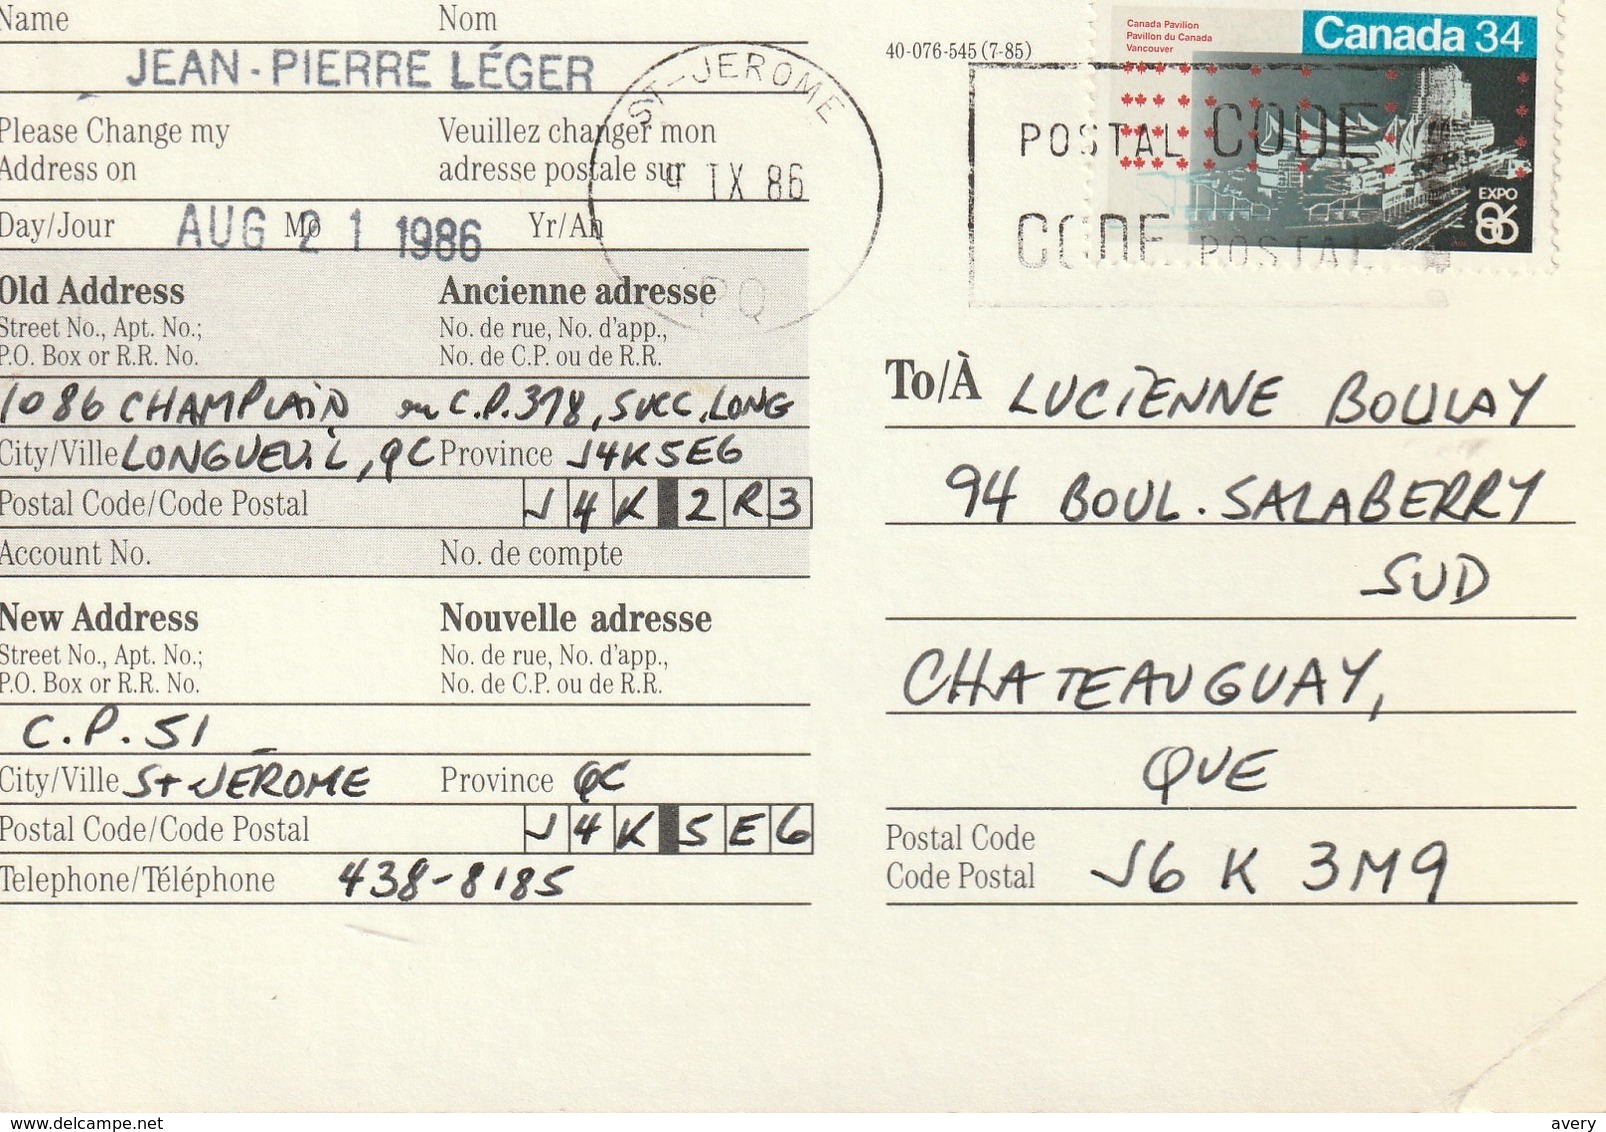 Name Nom
JEAN-PIERRE LÉGER
Please Change my Veuillez changer mon
Address on adresse postale sur
Day/Jour AUG Mo 21 1986 Yr/An
Old Address Ancienne adresse
Street No., Apt. No.; No. de rue, No. d'app.,
P.O. Box or R.R. No. No. de C.P. ou de R.R.
1086 CHAMPLAIN ou C.P. 378, SUCC. LONG
City/Ville LONGUEUIL, QC Province J4K5E6
Postal Code/Code Postal J4K 2R3
Account No. No. de compte
New Address Nouvelle adresse
Street No., Apt. No.; No. de rue, No. d'app.,
P.O. Box or R.R. No. No. de C.P. ou de R.R.
C.P. 51
City/Ville St JÉROME Province QC
Postal Code/Code Postal J4K 5E6
Telephone/Téléphone 438-8185
ST-JEROME
IX 86
PQ
40-076-545 (7-85)
Canada Pavilion
Pavillon du Canada
Vancouver
Canada 34
EXPO
86
POSTAL CODE
CODE POSTAL
To/À LUCIENNE BOULAY
94 BOUL. SALABERRY
SUD
CHATEAUGUAY,
QUE
Postal Code
Code Postal J6K 3M9
delcampe.net
avery